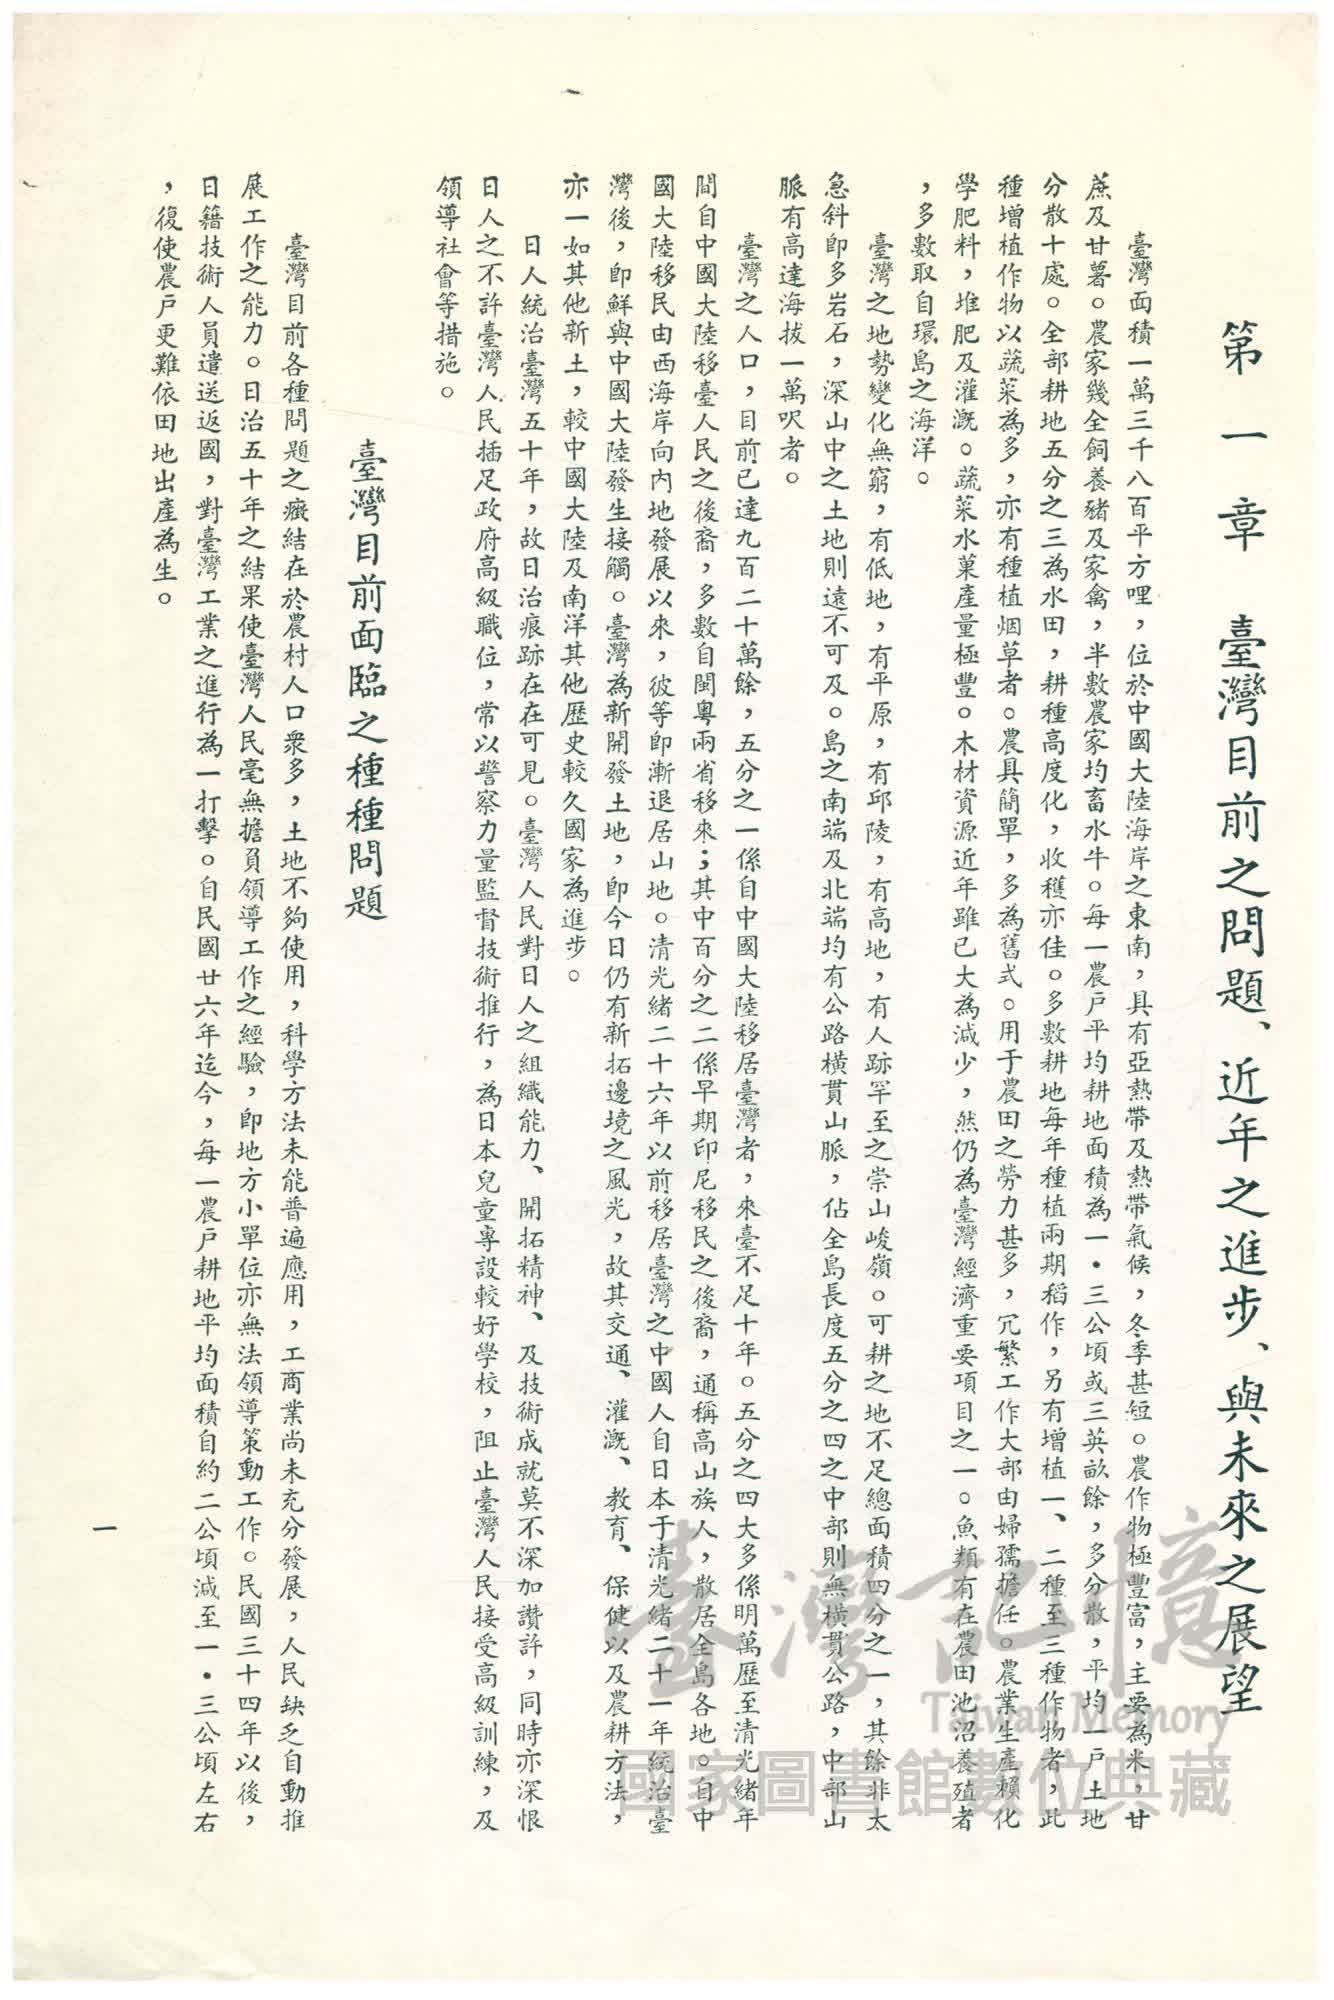 第一章　臺灣目前之問題、近年之進步、與未來之展望
臺灣面積一萬三千八百平方哩，位於中國大陸海岸之東南，具有亞熱帶及熱帶氣候，冬季甚短。農作物極豐富，主要為米，甘
蔗及甘薯。農家幾全飼養豬及家禽，半數農家均畜水牛。每一農戶平均耕地面積為一・三公頃或三英畝餘，多分散，平均一戶土地
分散十處。全部耕地五分之三為水田，耕種高度化，收穫亦佳。多數耕地每年種植兩期稻作，另有增植一、二種至三種作物者，此
種增植作物以蔬菜為多，亦有種植烟草者。農具簡單，多為舊式。用于農田之勞力甚多，冗繁工作大部由婦孺擔任。農業生產賴化
學肥料，堆肥及灌溉。蔬菜水菓產量極豐。木材資源近年雖已大為減少，然仍為臺灣經濟重要項目之一。魚類有在農田池沼養殖者
，多數取自環島之海洋。
臺灣之地勢變化無窮，有低地，有平原，有邱陵，有高地，有人跡罕至之崇山峻嶺。可耕之地不足總面積四分之一，其餘非太
急斜即多岩石，深山中之土地則遠不可及。島之南端及北端均有公路橫貫山脈，佔全島長度五分之四之中部則無橫貫公路，中部山
脈有高達海拔一萬呎者。
臺灣之人口，目前已達九百二十萬餘，五分之一係自中國大陸移居臺灣者，來臺不足十年。五分之四大多係明萬歷至清光緒年
間自中國大陸移臺人民之後裔，多數自閩粵兩省移來；其中百分之二係早期印尼移民之後裔，通稱高山族人，散居全島各地。自中
國大陸移民由西海岸向內地發展以來，彼等即漸退居山地。清光緒二十六年以前移居臺灣之中國人自日本于清光緒二十一年統治臺
灣後，即鮮與中國大陸發生接觸。臺灣為新開發土地，即今日仍有新拓邊境之風光，故其交通、灌溉、教育、保健以及農耕方法，
亦一如其他新土，較中國大陸及南洋其他歷史較久國家為進步。
日人統治臺灣五十年，故日治痕跡在在可見。臺灣人民對日人之組織能力、開拓精神、及技術成就莫不深加讚許，同時亦深恨
日人之不許臺灣人民插足政府高級職位，常以警察力量監督技術推行，為日本兒童專設較好學校，阻止臺灣人民接受高級訓練，及
領導社會等措施。
臺灣目前面臨之種種問題
臺灣目前各種問題之癥結在於農村人口衆多，土地不夠使用，科學方法未能普遍應用，工商業尚未充分發展，人民缺乏自動推
展工作之能力。日治五十年之結果使臺灣人民毫無擔負領導工作之經驗，即地方小單位亦無法領導策動工作。民國三十四年以後，
日籍技術人員遣送返國，對臺灣工業之進行為一打擊。自民國廿六年迄今，每一農戶耕地平均面積自約二公頃減至一・三公頃左右
，復使農戶更難依田地出產為生。
一
臺灣記憶
Taiwan Memory
國家圖書館數位典藏